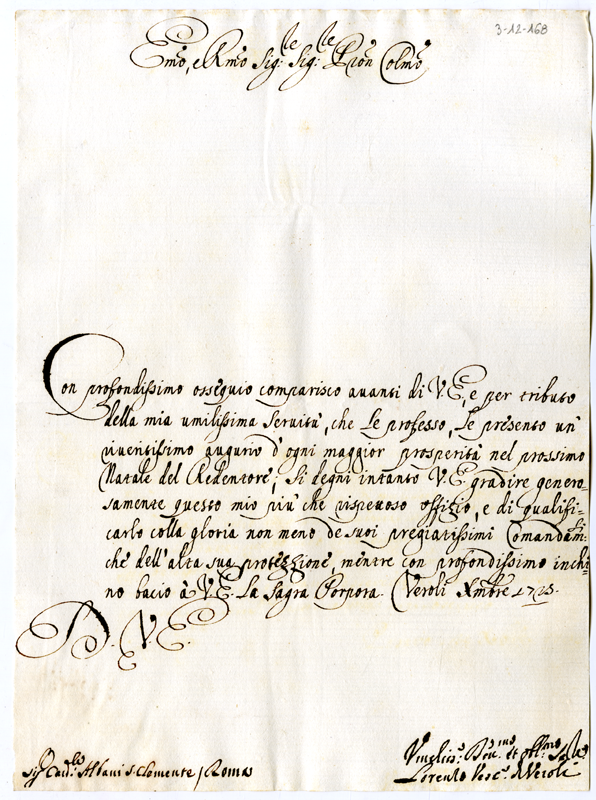 3-12-168
Emo, e Rmo Sig:le Sig:le Pron Colmo
Con profondissimo ossequio comparisco auanti di V.E., e per tributo
della mia umilissima seruitù, che Le professo, Le presento un'
viuentissimo augurio d'ogni maggior prosperità nel prossimo
Natale del Redentore; si degni intanto V.E. gradire genero-
samente questo mio più che rispettuoso offizio, e di qualifi-
carlo colla gloria non meno de suoi pregiatissimi Comandam:ti
che dell'alta sua protezzione, mentre con profondissimo inchi-
no bacio à V.E. La Sagra Porpora. Veroli Xmbre 1725.
D. V. E.
Sig Card:le Albani S. Clemente / Roma
Vmiliss:o Deu:mo et obl:mo
Lorenzo Vesc:o di Veroli